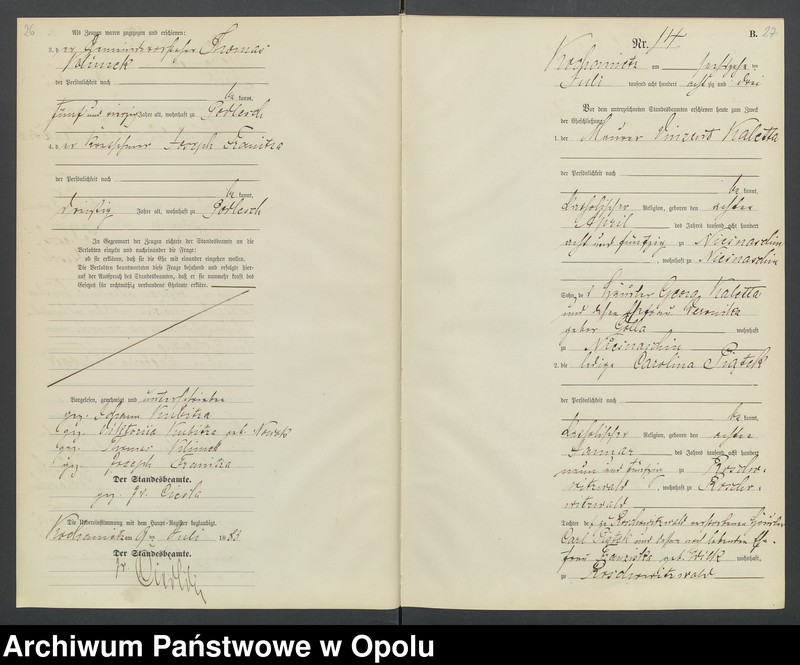 26
Als Zeugen waren zugezogen und erschienen:
3. der Gemeindevorsteher Thomas
Klimek
der Persönlichkeit nach
be kannt,
fünf und vierzig Jahre alt, wohnhaft zu Podlesch
4. der Joseph Franitza
der Persönlichkeit nach
be kannt,
dreißig Jahre alt, wohnhaft zu Podlesch
In Gegenwart der Zeugen richtete der Standesbeamte an die
Verlobten einzeln und nacheinander die Frage:
ob sie erklären, daß sie die Ehe mit einander eingehen wollen.
Die Verlobten beantworteten diese Frage bejahend und erfolgte hier-
auf der Ausspruch des Standesbeamten, daß er sie nunmehr kraft des
Gesetzes für rechtmäßig verbundene Eheleute erkläre.
Vorgelesen, genehmigt und unterschrieben
gez. Johann Kubitza
gez. Viktoriia Kubitza geb. Nowak
gez. Thomas Klimek
gez. Joseph Franitza
Der Standesbeamte.
gez. Fr. Ciesla
Die Uebereinstimmung mit dem Haupt-Register beglaubigt.
Kochanietz am 9ten Juli 1883
Der Standesbeamte.
Fr.
B. 27
Nr. 14
Kochanietz am sechszehn ten
Juli tausend acht hundert achtzig und drei
Vor dem unterzeichneten Standesbeamten erschienen heute zum Zweck
der Eheschließung:
1. der Maurer Vinzent Kaletta
der Persönlichkeit nach
be kannt,
katholischer Religion, geboren den achten
April des Jahres tausend acht hundert
acht und fünfzig zu Niesnaschin
, wohnhaft zu Niesnaschin
Sohn des Häusler Georg Kaletta
und dessen Ehefrau Veronika
gebor Golla wohnhaft
zu Niesnaschin
2. die ledige Carolina Piątek
der Persönlichkeit nach
be kannt,
katholischer Religion, geboren den achten
Januar des Jahres tausend acht hundert
neun und fünfzig zu Roscho-
witzwald , wohnhaft zu Roscho-
witzwald
Tochter des zu Roschowitzwald verstorbenen Häusler
Carl Piątek und dessen noch lebenden Ehe-
frau Franziska geb. Wilk wohnhaft,
zu Roschowitzwald
Archiwum Państwowe w Opolu